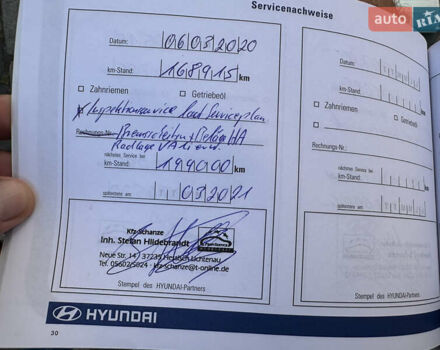 Servicenachweise
auto RIA
Datum: 06 03 2020
km-Stand: 168915 km
Zahnriemen Getriebeöl
Inspektionsservice laut Serviceplan
Rechnungs-Nr.: Bremsscheiben + Beläge HA
Radlager VA li
nächstes Service bei
km-Stand: 199000 km
spätestens am: 03 2021
Kfz-Schanze
Inh. Stefan Hildebrandt
Neue Str. 14 / 37235 Hessisch Lichtenau
Tel. 05602/5024 - kfz-schanze@t-online.de
Stempel des HYUNDAI-Partners
HYUNDAI
30
Datum:
km-Stand:
Zahnriemen
Rechnungs-Nr.:
nächstes Service bei
km-Stand: km
spätestens am:
Stempel des HYUNDAI-Partners